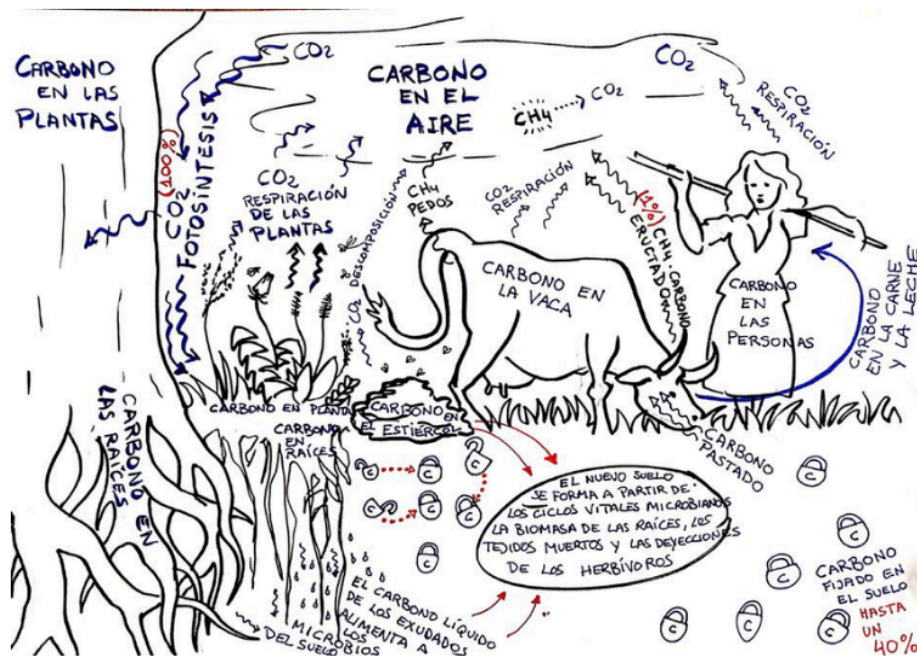 CARBONO
EN LAS
PLANTAS
CO2
(100%)
CO2
FOTOSÍNTESIS
CARBONO
EN EL
AIRE
CH4
CO2
CO2
CO2
RESPIRACIÓN
CO2
RESPIRACIÓN
DE LAS
PLANTAS
CO2 DESCOMPOSICIÓN
CH4
PEDOS
CO2
RESPIRACIÓN
(1%) CH4: CARBONO
ERUCTADO
CARBONO EN
LA VACA
CARBONO
EN
LAS
PERSONAS
CARBONO
EN LA CARNE
Y LA LECHE
CARBONO EN PLANTA
CARBONO EN
EL ESTIÉRCOL
CARBONO
EN
RAÍCES
CARBONO EN
LAS RAÍCES
CARBONO
PASTADO
C
C
C
C
C
C
EL NUEVO SUELO
SE FORMA A PARTIR DE:
LOS CICLOS VITALES MICROBIANOS
LA BIOMASA DE LAS RAÍCES, LOS
TEJIDOS MUERTOS Y LAS DEYECCIONES
DE LOS HERBÍVOROS
EL CARBONO LÍQUIDO
DE LOS EXUDADOS
ALIMENTA A
LOS
MICROBIOS
DEL SUELO
C
C
C
C
C
C
CARBONO
FIJADO EN
EL SUELO
HASTA
UN
40%